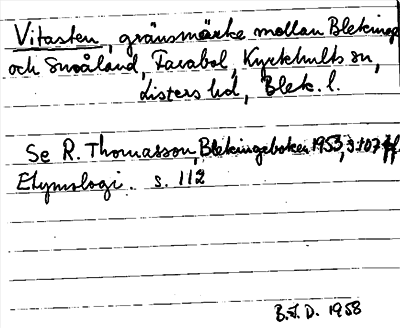 Vitasten, gränsmärke mellan Blekinge
och Småland, Farabol, Kyrkhults sn,
Listers hd, Blek. l.
Se R. Thomasson, Blekingeboken 1953, s. 107 ff.
Etymologi. s. 112
B.J.D. 1958